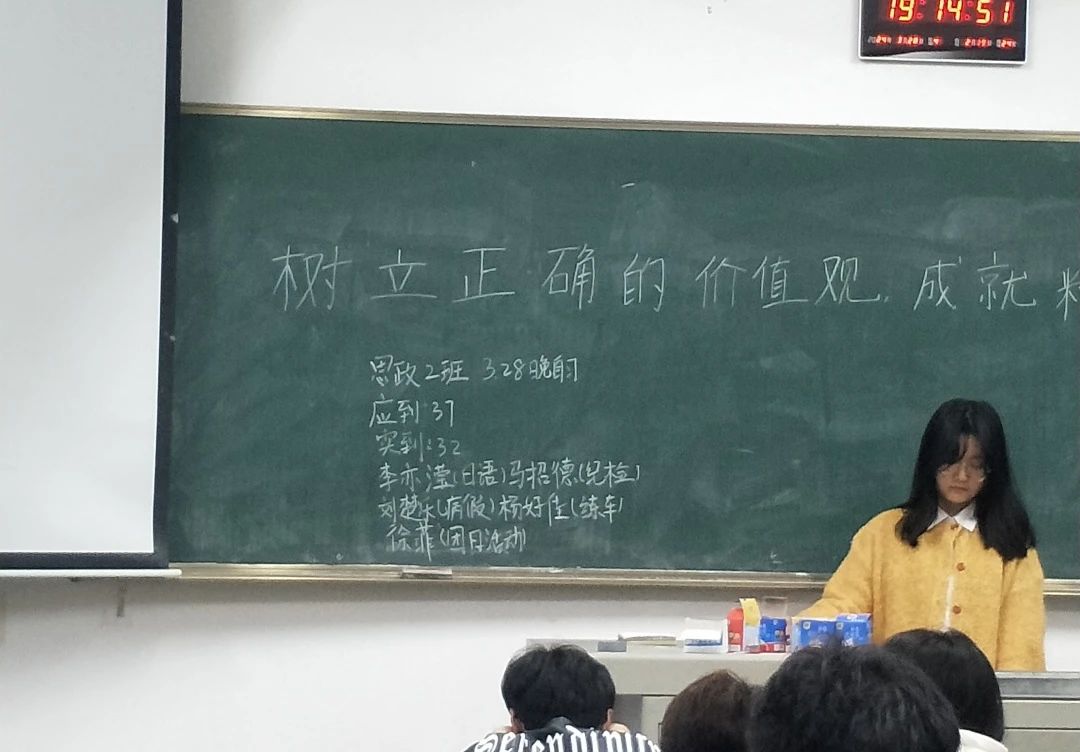 19:14:51
树立正确的价值观,成就
思政2班 3.28晚自习
应到:37
实到:32
李亦滢(日语)马招德(纪检)
刘楚(病假)杨好佳(练车)
徐菲(团日活动)